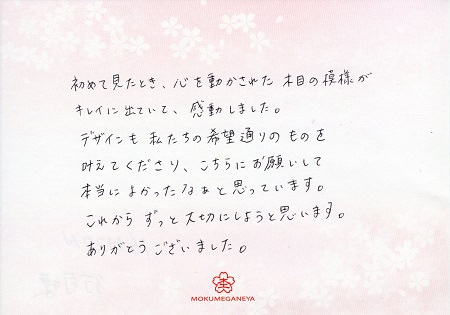 初めて見たとき、心を動かされた 木目の模様が
キレイに出ていて、感動しました。
デザインも 私たちの希望通りのものを
叶えてくださり、こちらにお願いして
本当によかったなぁと思っています。
これから ずっと大切にしようと思います。
ありがとうございました。
MOKUMEGANEYA